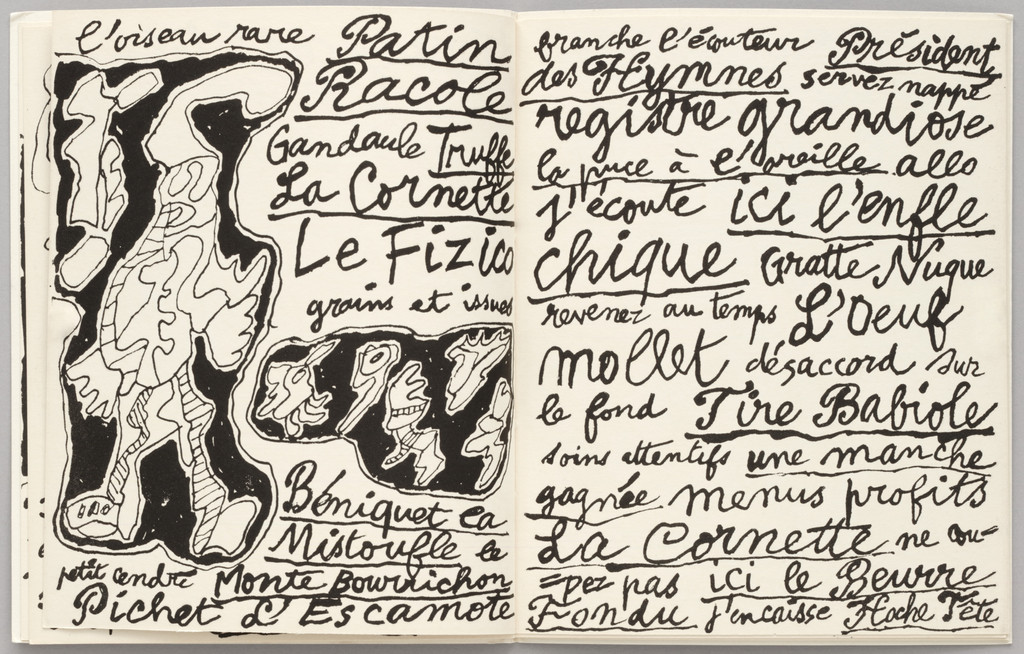 l'oiseau rare Patin
Racole
Gandaule Truffe
La Cornette
Le Fizico
grains et issues
Béniquet la
Mistoufle le
petit cendré Monte Bourrichon
Pichet L'Escamote
branche l'écouteur Président
des Hymnes servez nappe
registre grandiose
la puce à l'oreille allo
j'écoute ici l'enfle
chique Gratte Nuque
revenez au temps L'Oeuf
mollet désaccord sur
le fond Tire Babiole
soins attentifs une manche
gagnée menus profits
La Cornette ne cou=
=pez pas ici le Beurre
Fondu j'encaisse Hoche Tête